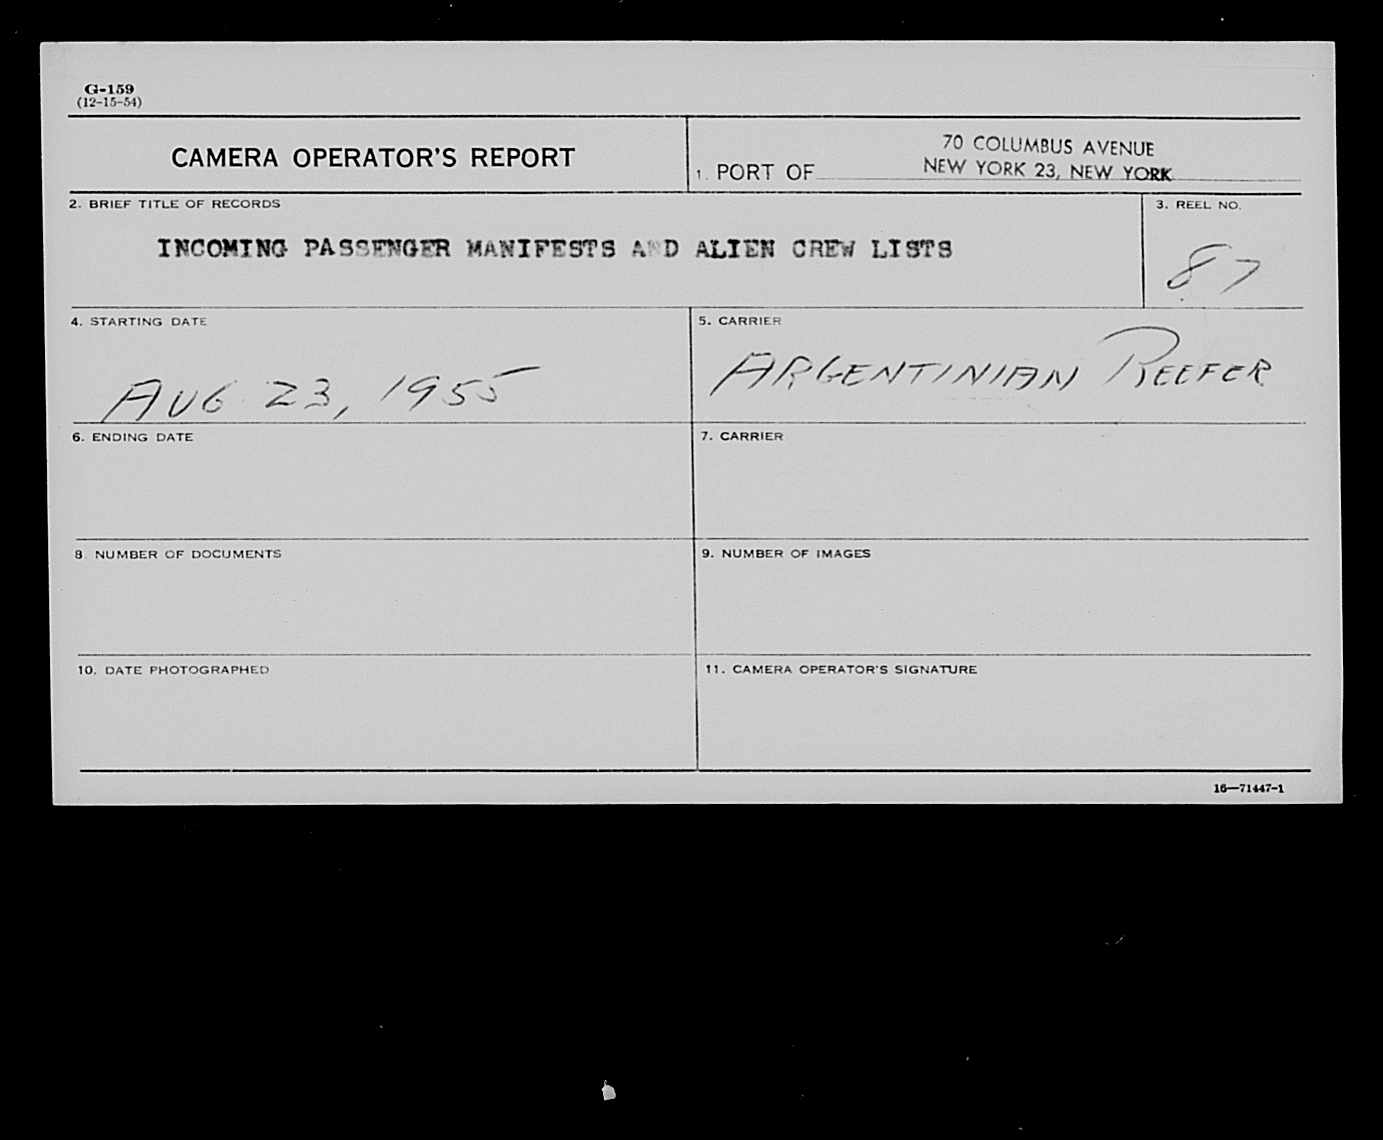 G-159
(12-15-54)
CAMERA OPERATOR'S REPORT
1. PORT OF
70 COLUMBUS AVENUE
NEW YORK 23, NEW YORK
2. BRIEF TITLE OF RECORDS
INCOMING PASSENGER MANIFESTS AND ALIEN CREW LISTS
3. REEL NO.
87
4. STARTING DATE
AUG 23, 1955
5. CARRIER
ARGENTINIAN REEFER
6. ENDING DATE
7. CARRIER
8. NUMBER OF DOCUMENTS
9. NUMBER OF IMAGES
10. DATE PHOTOGRAPHED
11. CAMERA OPERATOR'S SIGNATURE
16—71447-1